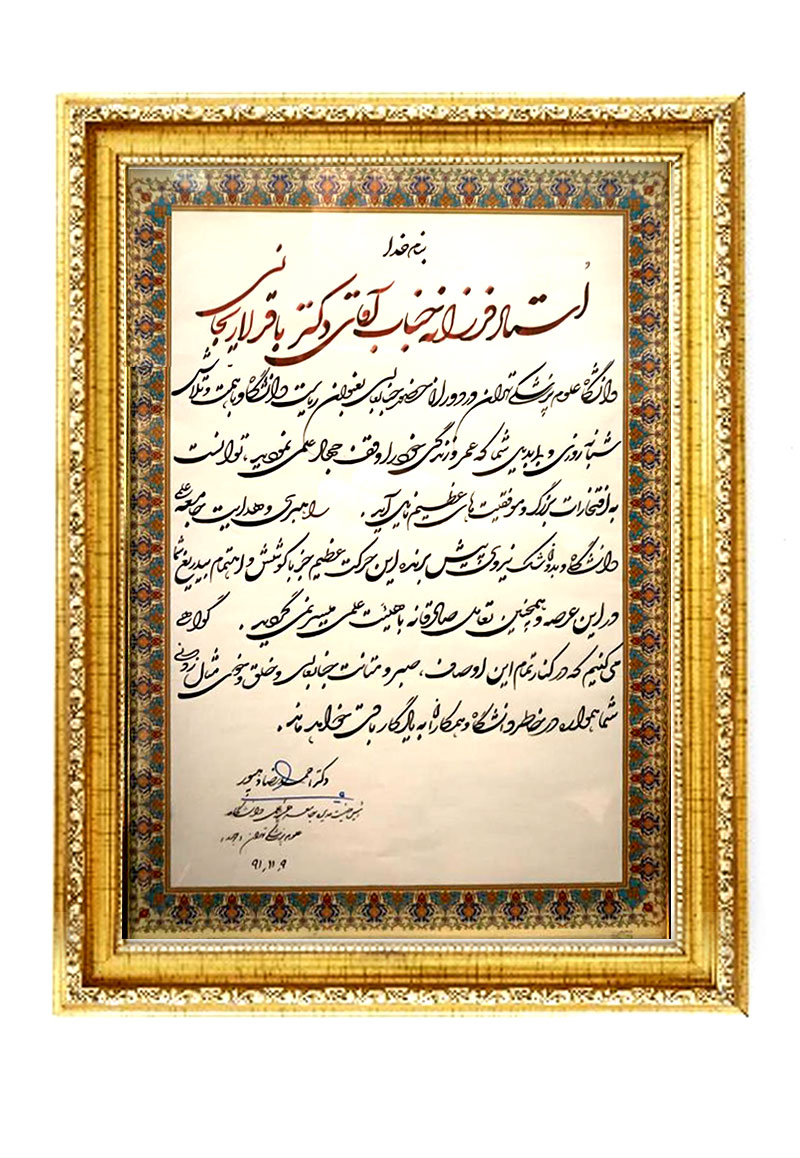 بنام خدا
اُستاد فرزانه جناب آقای دکتر باقر لاریجانی
دانشگاه علوم پزشکی تهران در دوران حضور جنابعالی بعنوان ریاست دانشگاه و با همت و تلاش
شبانه روزی و بی بدیل شما که عمر و زندگی خود را وقف جهاد علمی نمودید، توانست
به افتخارات بزرگ و موفقیت های عظیم نایل آید. راهبری و هدایت جامعه علمی
دانشگاه و بدون شک نیروی پیش برنده این حرکت عظیم جز با کوشش و اهتمام بیدریغ شما
در این عرصه و همچنین تعامل صادقانه با هیئت علمی میسر نمی گردید. گواهی
می کنیم که در کنار تمام این اوصاف، صبر و متانت جنابعالی و خلق و خوی مثال زدنی
شما همواره در خاطر دانشگاه و همکاران به یادگار باقی خواهد ماند.
دکتر احمدرضا دهپور
رئیس هیئت مدیره جامعه دانشگاه
علوم پزشکی تهران
۹۱,۱۱,۹